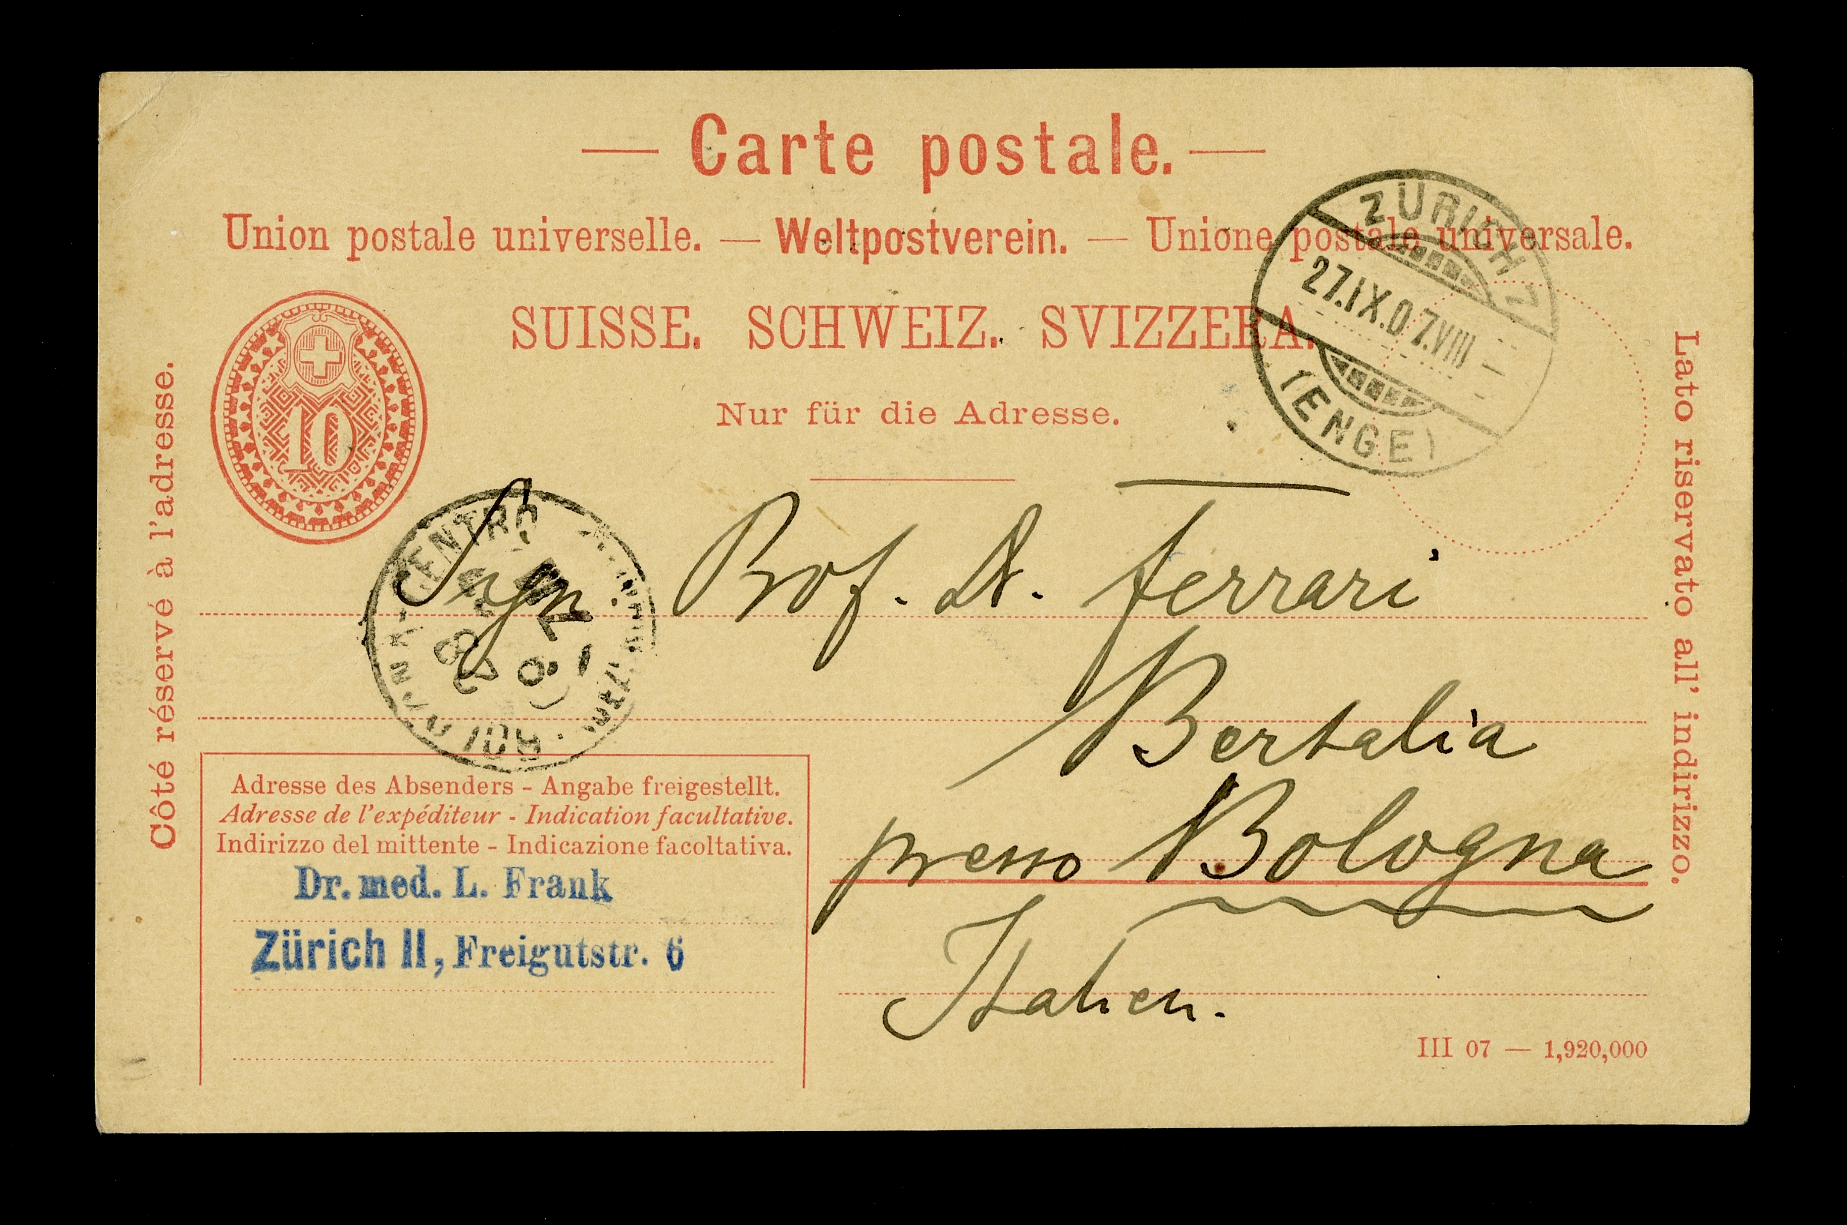 — Carte postale. —
Union postale universelle. — Weltpostverein. — Unione postale universale.
SUISSE. SCHWEIZ. SVIZZERA.
Nur für die Adresse.
10
ZÜRICH 7
27.IX.07.VIII
(ENGE)
Côté réservé à l'adresse.
Lato riservato all' indirizzo.
CENTRO
Sign. Prof. Dr. Ferrari
Bertalia
presso Bologna
Italien.
Adresse des Absenders - Angabe freigestellt.
Adresse de l'expéditeur - Indication facultative.
Indirizzo del mittente - Indicazione facoltativa.
Dr. med. L. Frank
Zürich II, Freigutstr. 6
III 07 — 1,920,000